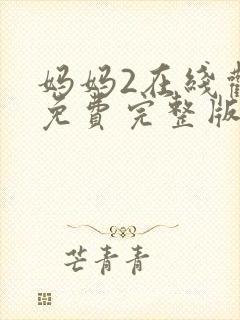 妈妈2在线
免费完整版
芒青青